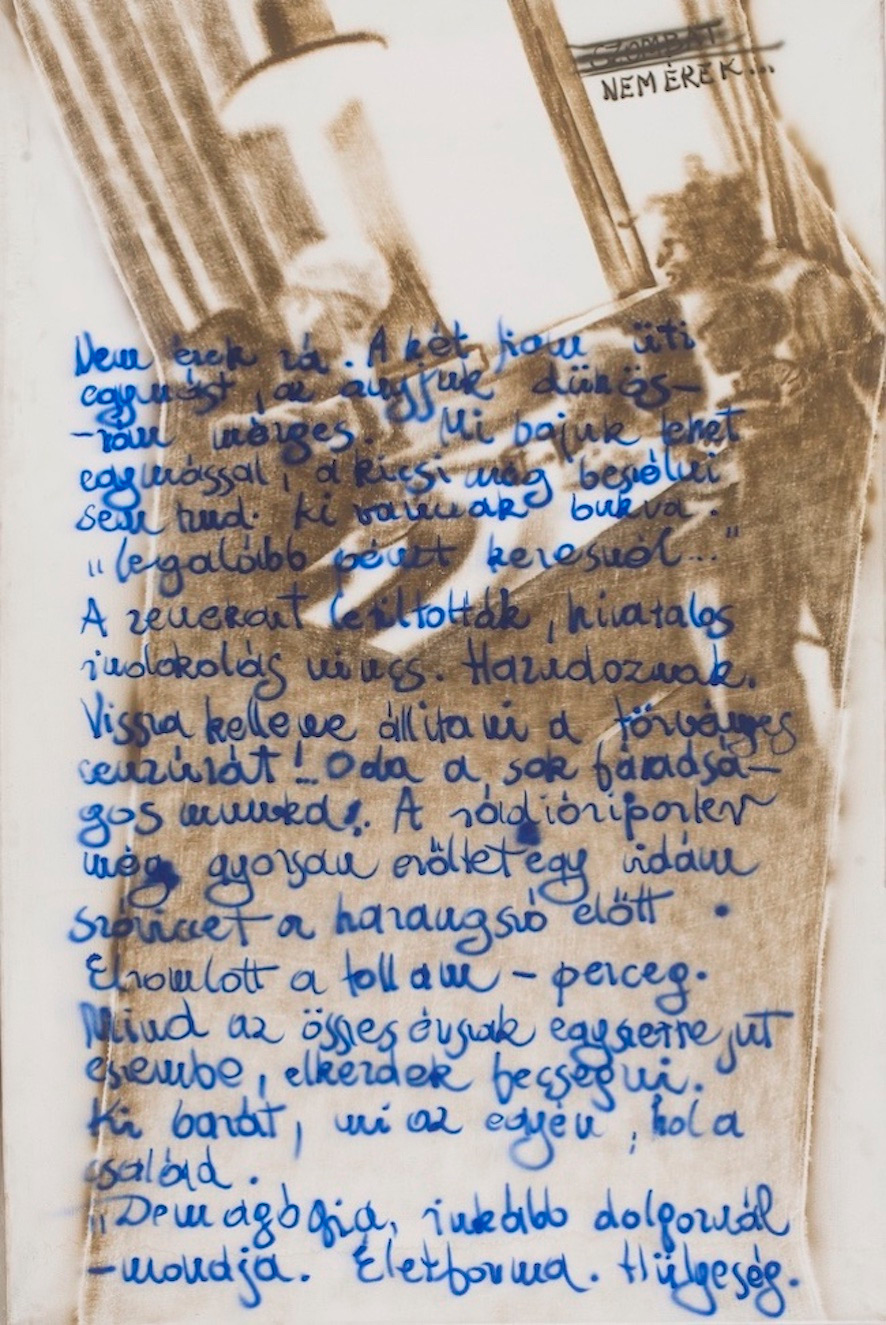 SZOMBAT
NEM ÉREK...
Nem érek rá. A két fiam üti
egymást, az anyjuk dühös-
-rám mérges. Mi bajuk lehet
egymással, a kicsi még beszélni
sem tud. Ki vannak bukva.
„legalább pénzt keresnél..."
A zenekart letiltották, hivatalos
indokolás nincs. Hazudoznak.
Vissza kellene állítani a törvényes
cenzúrát!.. Oda a sok fáradsá-
gos munka!. A rádióriporter
még gyorsan erőltet egy vidám
szóviccet a harangszó előtt.
Elromlott a tollam - perceg.
Mind az összes évszak egyszerre jut
eszembe, elkezdek fecsegni.
Ki barát, mi az egyén, hol a
család.
„Demagógia, inkább dolgoznál
-mondja. Életforma. Hülyeség.